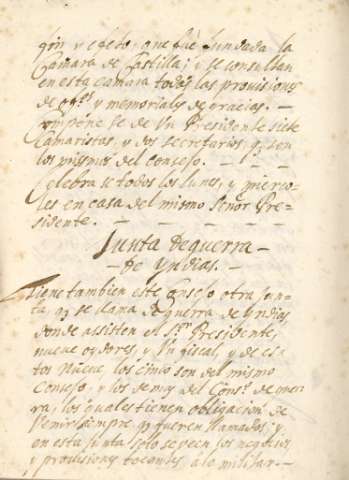 fin y efeto, que fue fundada la
Camara de Castilla; i se consultan
en esta camara todas las provisiones
de offº.s y memoriales de gracias. —
Compone se de Un Presidente siete
Camaristas, y dos secretarios, q. son
los mismos del Consejo. — . — . —
Celebra se todos los lunes, y mierco-
les en casa del mismo Señor Pre-
sidente. — — — —
Junta de guerra —
— de Yndias. —
Tiene tambien este Consejo otra Jun-
ta, q. se llama de guerra de Yndias,
donde assisten el S.r Presidente,
nueve oydores, y Un fiscal, y de es-
tos Nueve, los cinco son del mismo
Consejo, y los demas del Cons.º de guer
ra, los quales tienen obligacion de
Venir siempre, q. fueren llamados; y
en esta junta solo se veen los negocios
y provisiones tocantes, a lo militar —